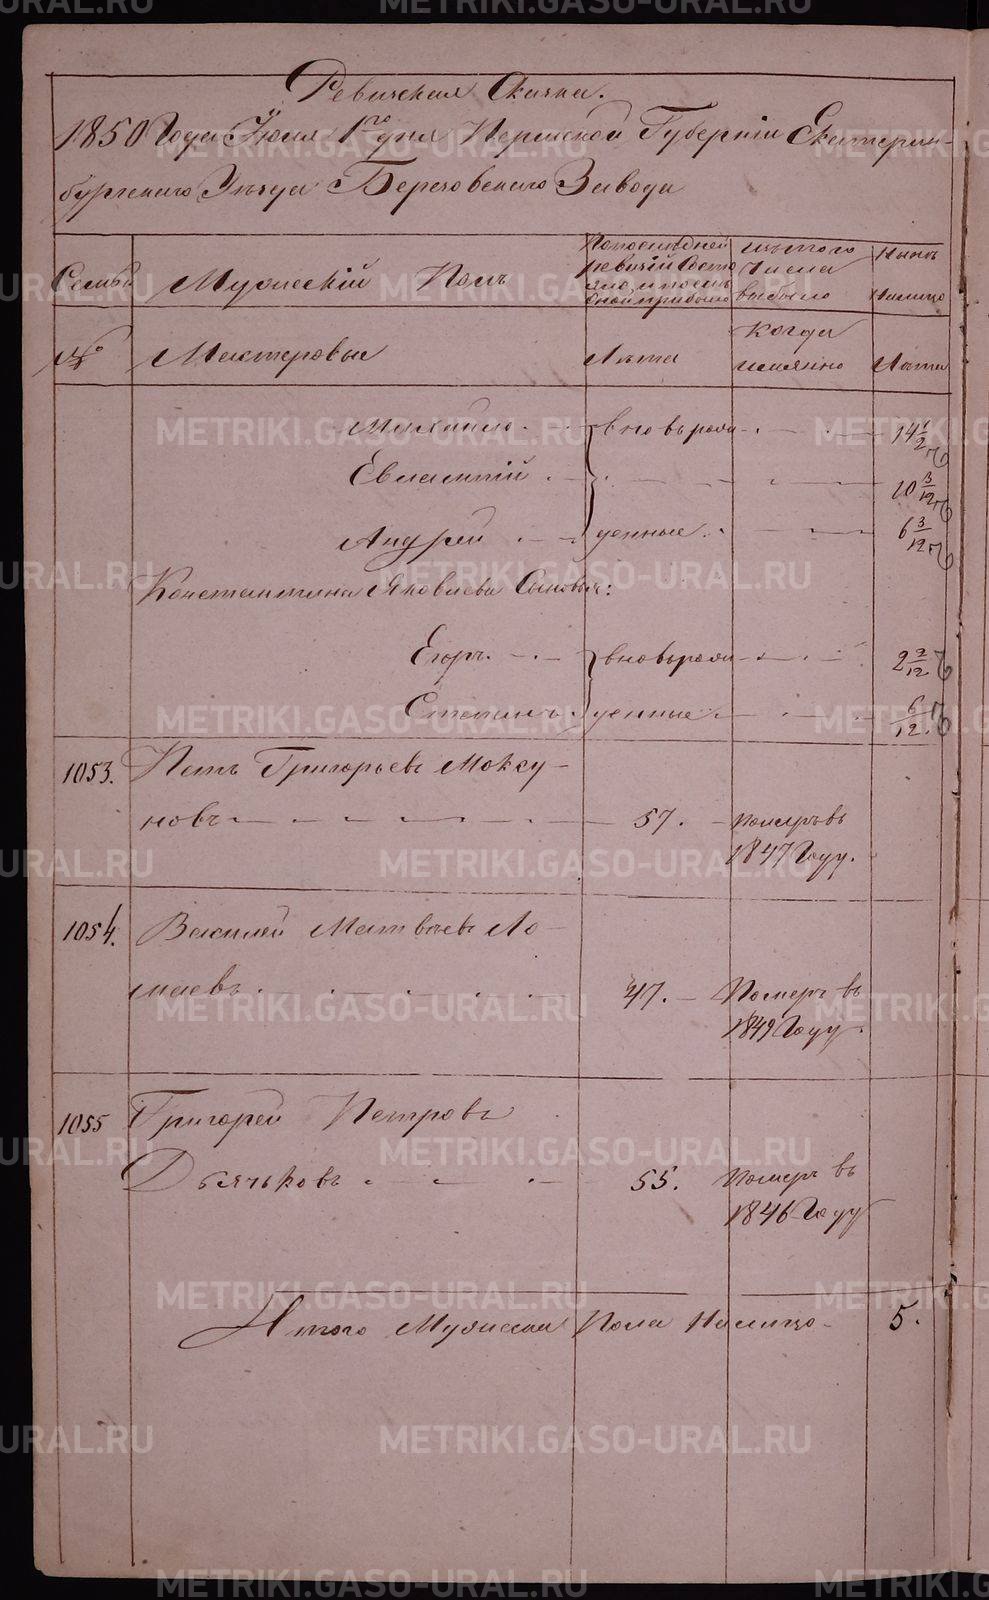 Ревизская Сказка.
1850 Года Июля 1го дня Пермской Губернiи Екатерин-
бургскаго Уѣзда Березовскаго Завода
Семьи Мужескiй Полъ По последней ревизiи Состояло и послѣ оной прибыло Изъ того Числа выбыло Нынѣ на лицо
№ Мастеровые Лѣта Когда имянно Лѣта
Михайло вновь рож- 14 1/2
Евлампiй 10 3/12
Андрей денные 6 3/12
Константина Яковлева Сыновья:
Егоръ вновь рож- 2 2/12
Степанъ денные 6/12
1053. Петръ Григорьевъ Моксу-
новъ 57. померъ въ
1847 Году.
1054. Василей Матвѣевъ Ло-
маевъ 47. Померъ въ
1849 Году.
1055 Григорей Петровъ
Дьячьковъ 55. Померъ въ
1846 Году
Итого Мужеска Пола На лицо 5.
METRIKI.GASO-URAL.RU